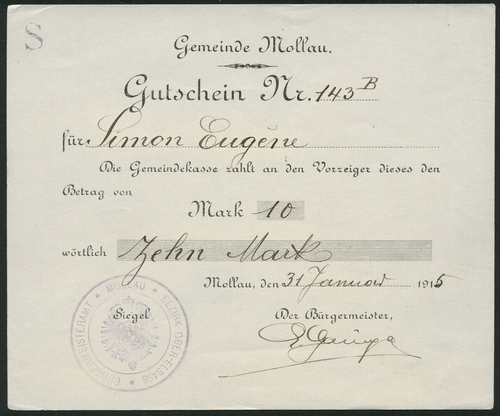 S
Gemeinde Mollau.
Gutschein Nr. 143 B
für Simon Eugène
Die Gemeindekasse zahlt an den Vorzeiger dieses den
Betrag von
Mark 10
wörtlich Zehn Mark
Mollau, den 31 Januar 1915
Siegel
Der Bürgermeister,
BÜRGERMEISTERAMT * MOLLAU * BEZIRK OBER-ELSASS *